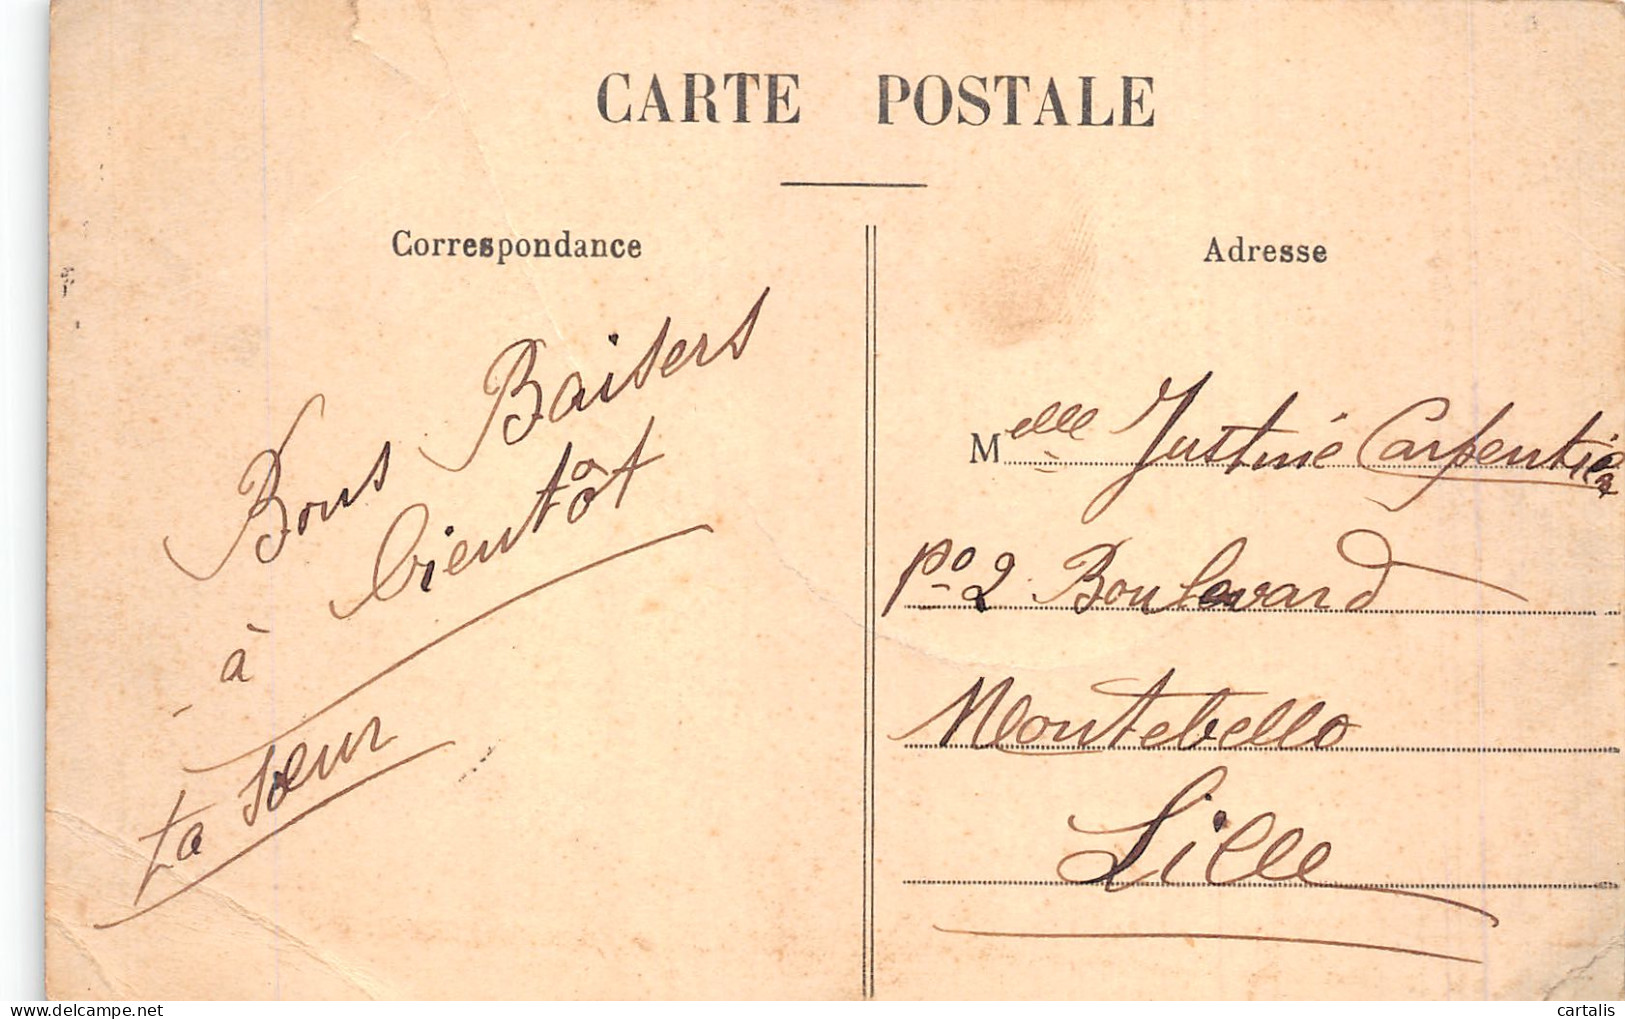 CARTE POSTALE
Correspondance
Bons Baisers
à bientôt
Ta sœur
Adresse
Melle Justine Carpentier
po 2 Boulevard
Montebello
Lille
cartalis
delcampe.net